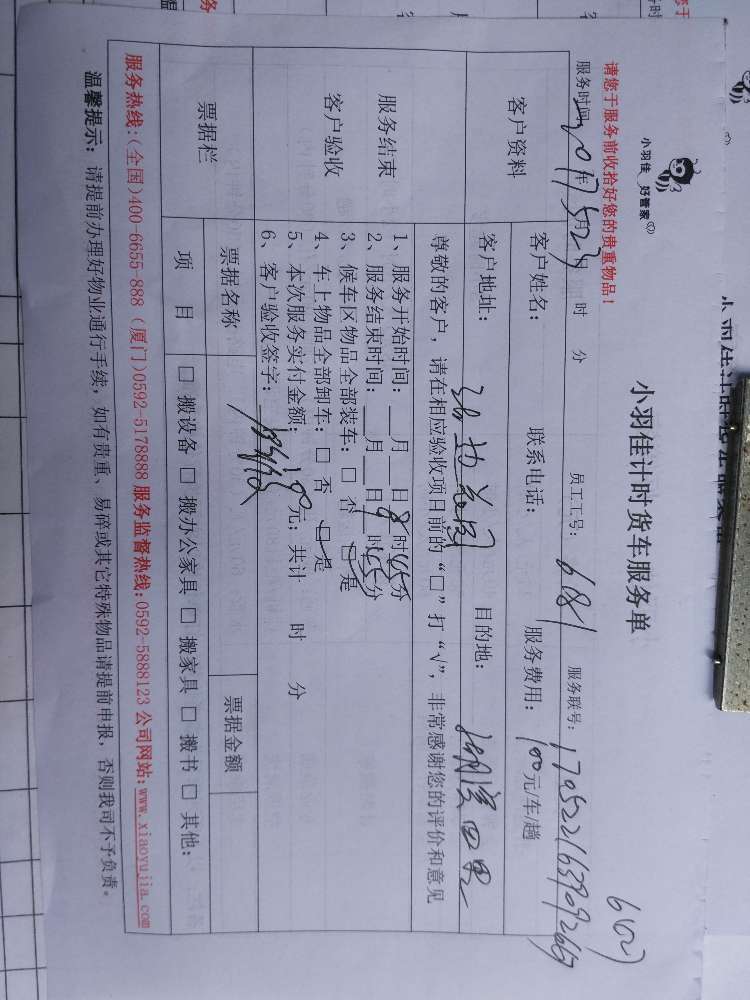 小羽佳 好管家
小羽佳计时货车服务单
请您于服务前收拾好您的贵重物品！
6(02)
服务时间: 2017年5月23日 时 分 员工工号: 6181 服务联号:
客户资料
客户姓名: 联系电话: 服务费用: 100元/车/趟
客户地址: 目的地:
服务结束
客户验收
尊敬的客户，请在相应验收项目前的“□”打“√”，非常感谢您的评价和意见
1、服务开始时间: 月 日 8 时 45 分
2、服务结束时间: 月 日 时 分
3、候车区物品全部装车: □ 否 □ 是
4、车上物品全部卸车: □ 否 □ 是
5、本次服务实付金额: 100 元; 共计 时 分
6、客户验收签字:
票据栏
票据名称 票据金额
项 目 □ 搬设备 □ 搬办公家具 □ 搬家具 □ 搬书 □ 其他:
服务热线:(全国)400-6655-888 (厦门)0592-5178888 服务监督热线:0592-5888123 公司网站:www.xiaoyujia.com
温馨提示: 请提前办理好物业通行手续，如有贵重、易碎或其它特殊物品请提前申报，否则我司不予负责。